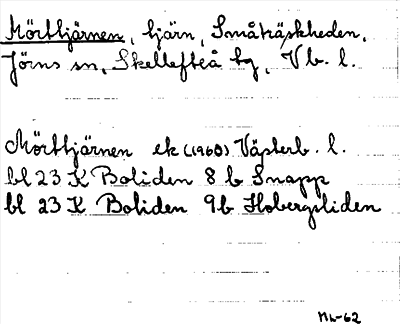 Mörttjärnen, tjärn, Småträskheden,
Jörns sn, Skellefteå tg, Vb. l.
Mörttjärnen ek (1960) Västerb. l.
bl 23 K Boliden 8 b Snapp
bl 23 K Boliden 9b Hobergsliden
NL-62